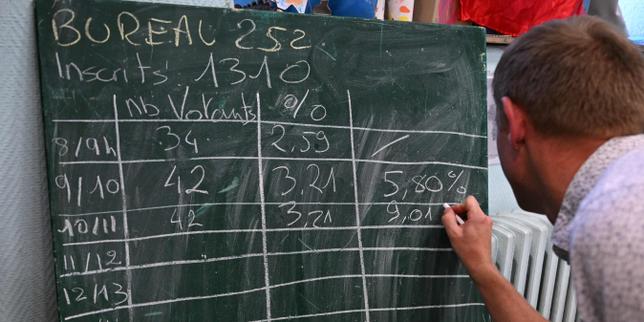 BUREAU 252
Inscrits 1310
nb Votants %
8/9h 34 2,59 /
9/10 42 3,21 5,80%
10/11 42 3,21 9,01
11/12
12/13